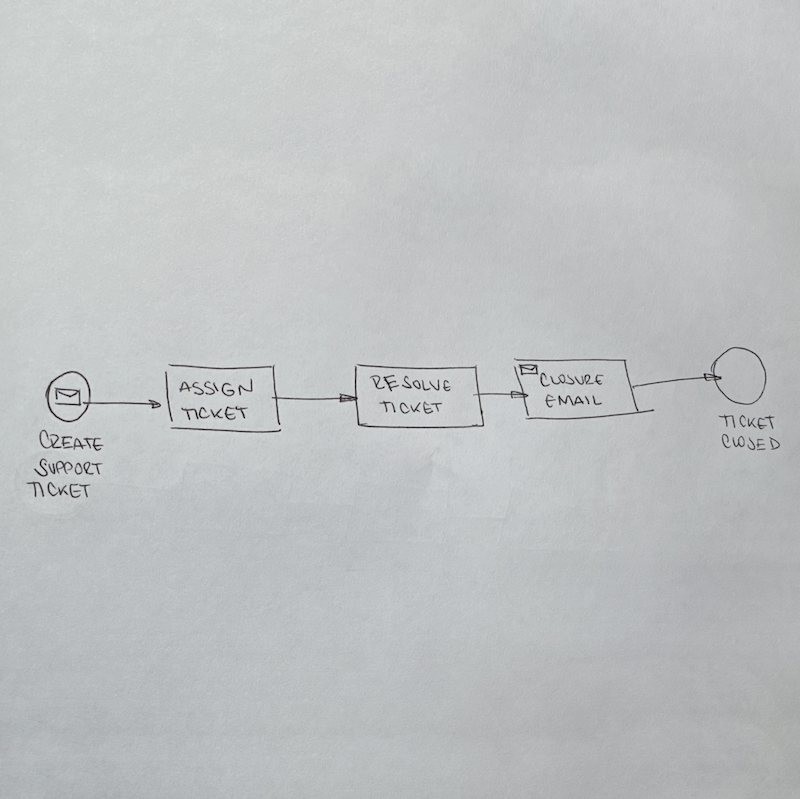 CREATE
SUPPORT
TICKET
ASSIGN
TICKET
RESOLVE
TICKET
CLOSURE
EMAIL
TICKET
CLOSED